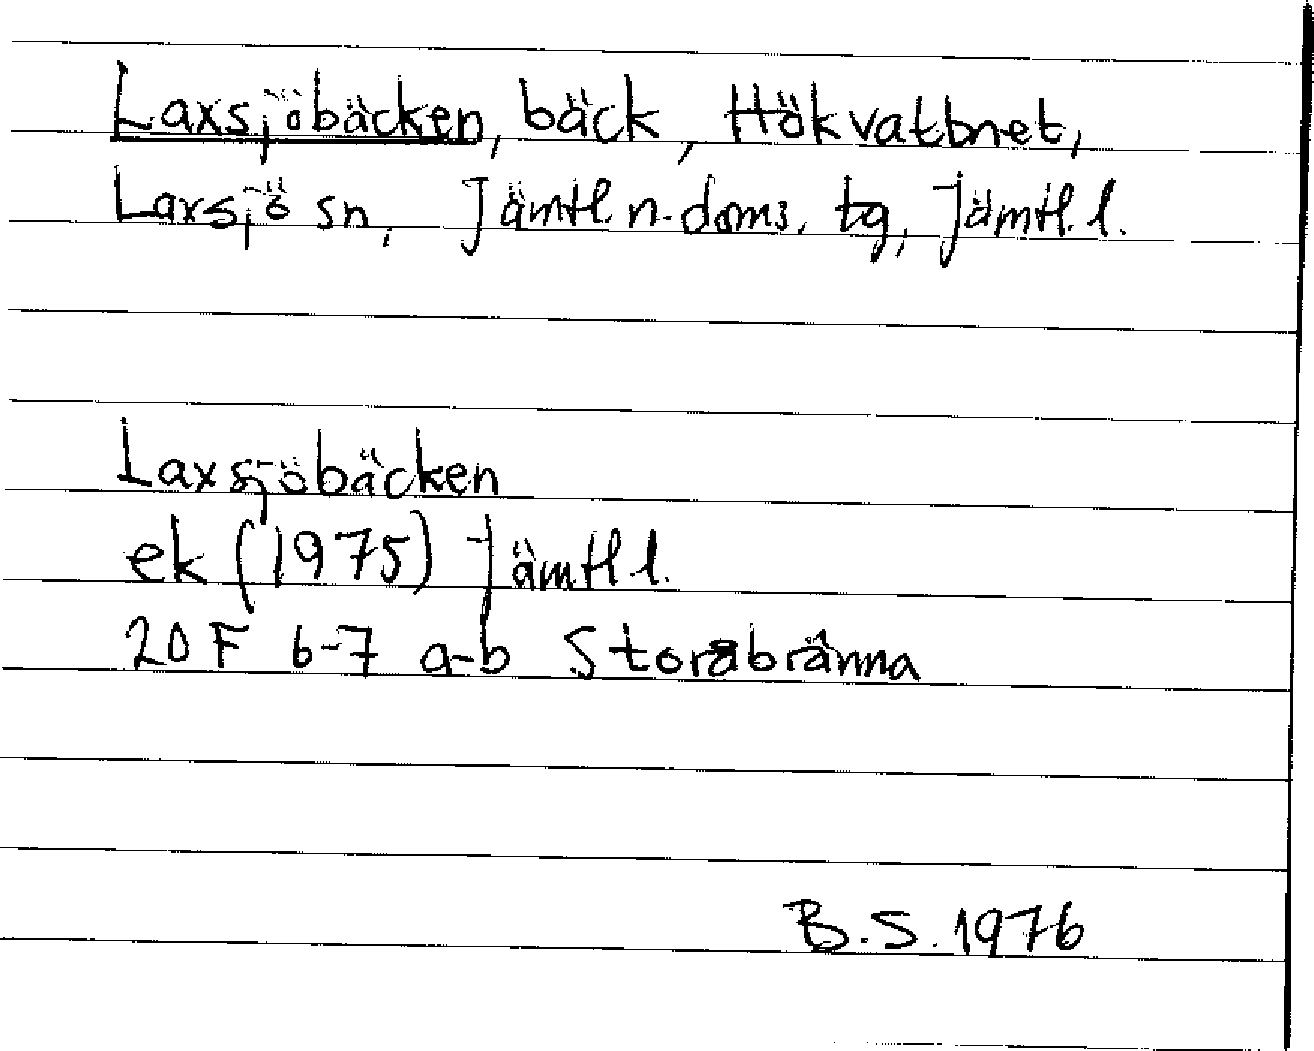 Laxsjöbäcken, bäck, Hökvattnet,
Laxsjö sn, Jämtl. n. doms. tg, Jämtl. l.
Laxsjöbäcken
ek (1975) Jämtl. l.
20 F 6-7 a-b Storabränna
B.S. 1976